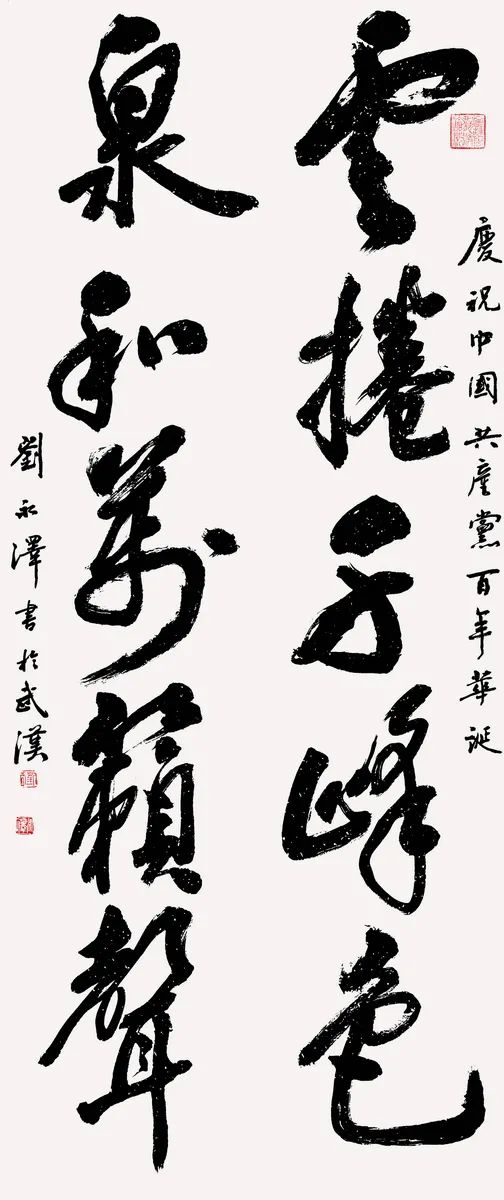 慶祝中國共產黨百年華誕
雲捲千峰色
泉和萬籟聲
劉永澤書於武漢